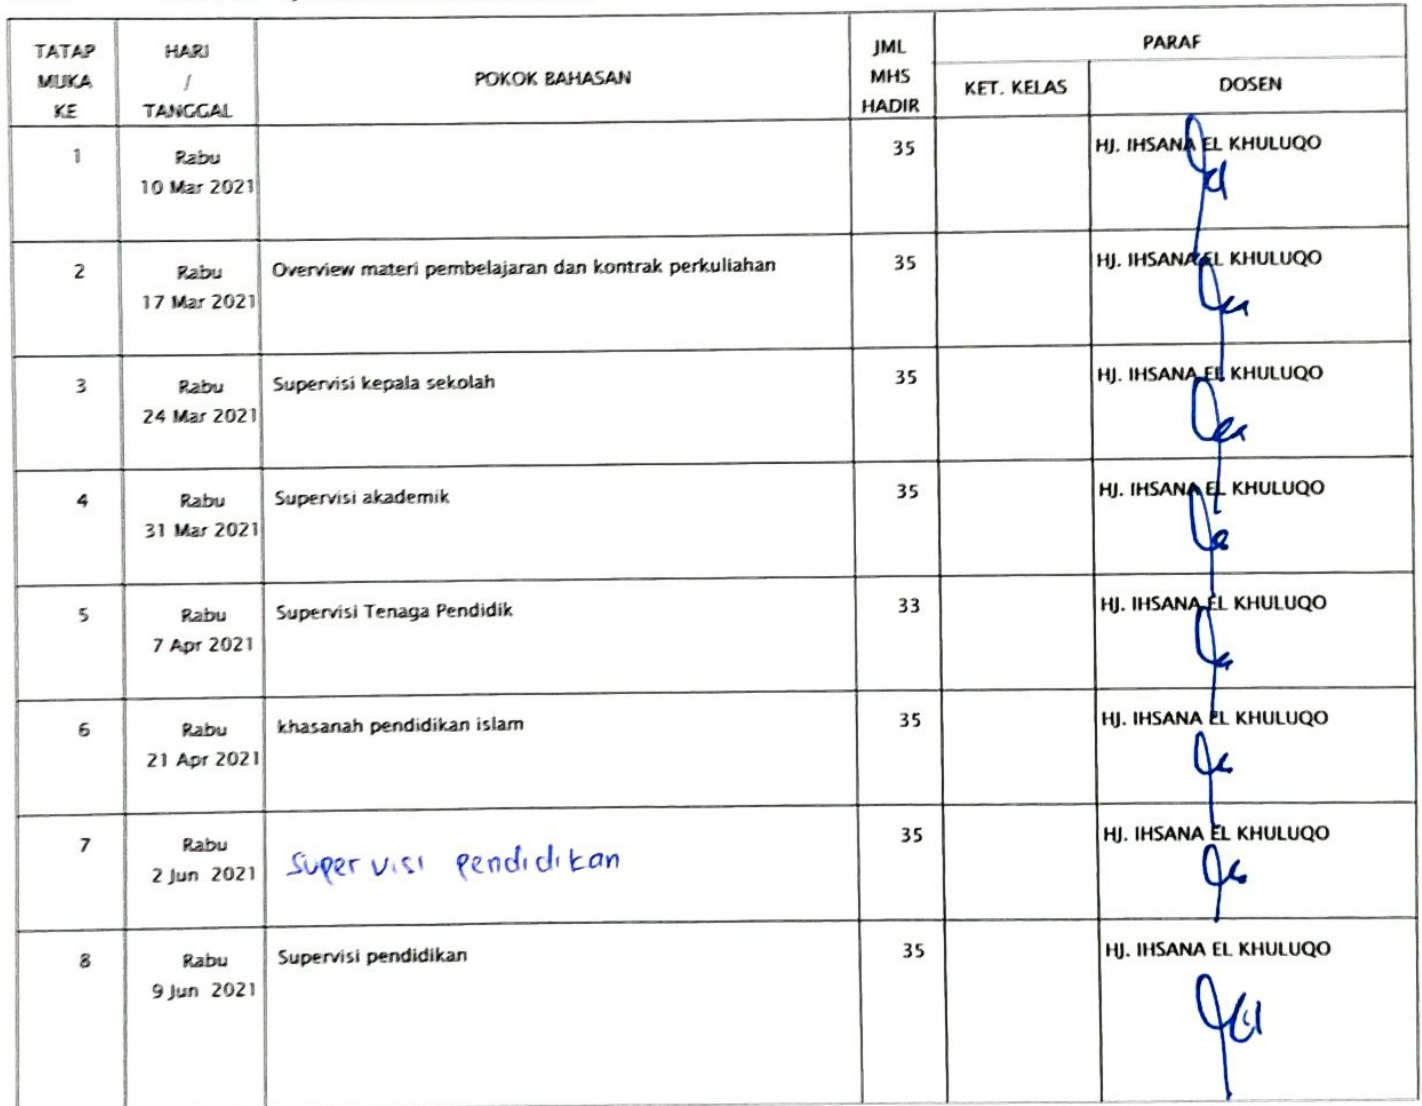 TATAP MUKA KE | HARI / TANGGAL | POKOK BAHASAN | JML MHS HADIR | PARAF
KET. KELAS | DOSEN
1 | Rabu 10 Mar 2021 | | 35 | | HJ. IHSANA EL KHULUQO
2 | Rabu 17 Mar 2021 | Overview materi pembelajaran dan kontrak perkuliahan | 35 | | HJ. IHSANA EL KHULUQO
3 | Rabu 24 Mar 2021 | Supervisi kepala sekolah | 35 | | HJ. IHSANA EL KHULUQO
4 | Rabu 31 Mar 2021 | Supervisi akademik | 35 | | HJ. IHSANA EL KHULUQO
5 | Rabu 7 Apr 2021 | Supervisi Tenaga Pendidik | 33 | | HJ. IHSANA EL KHULUQO
6 | Rabu 21 Apr 2021 | khasanah pendidikan islam | 35 | | HJ. IHSANA EL KHULUQO
7 | Rabu 2 Jun 2021 | Supervisi pendidikan | 35 | | HJ. IHSANA EL KHULUQO
8 | Rabu 9 Jun 2021 | Supervisi pendidikan | 35 | | HJ. IHSANA EL KHULUQO